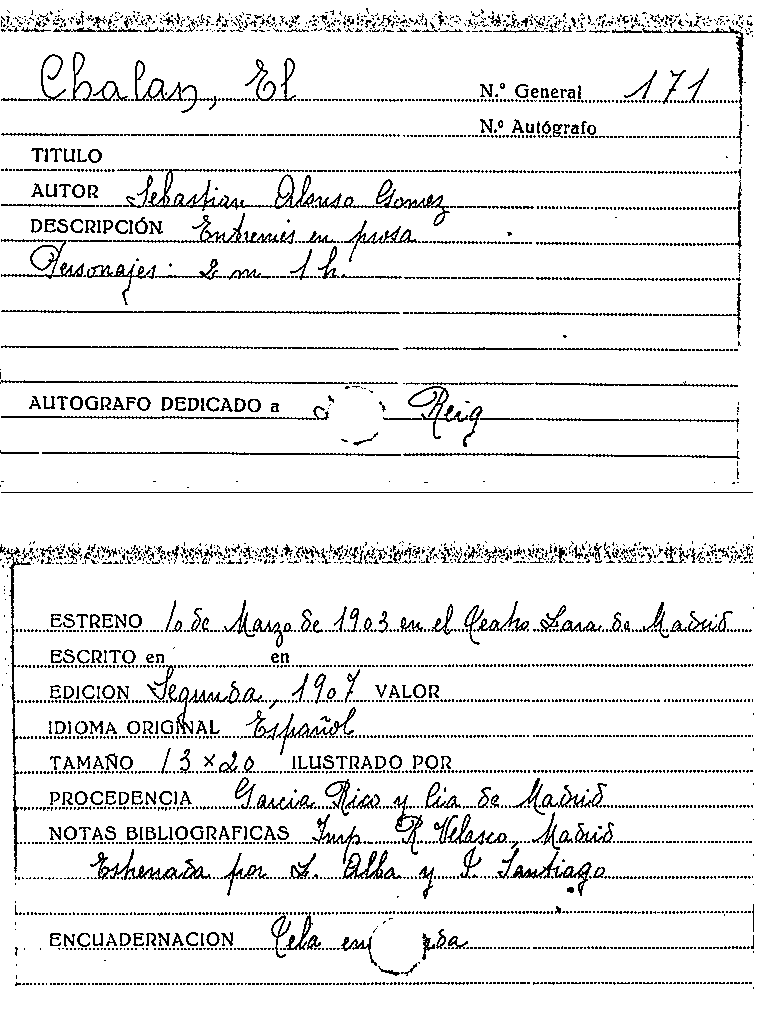 Chalan, El
N.º General 171
N.º Autógrafo
TITULO
AUTOR Sebastian Alonso Gomez
DESCRIPCIÓN Entremés en prosa
Personajes: 2 m 1 h.
AUTOGRAFO DEDICADO a Reig
ESTRENO 10 de Marzo de 1903 en el Teatro Lara de Madrid
ESCRITO en en
EDICION Segunda, 1907 VALOR
IDIOMA ORIGINAL Español
TAMAÑO 13 × 20 ILUSTRADO POR
PROCEDENCIA Garcia Rico y Cia de Madrid
NOTAS BIBLIOGRAFICAS Imp R Velasco, Madrid
Estrenada por L. Alba y P. Santiago
ENCUADERNACION Tela en